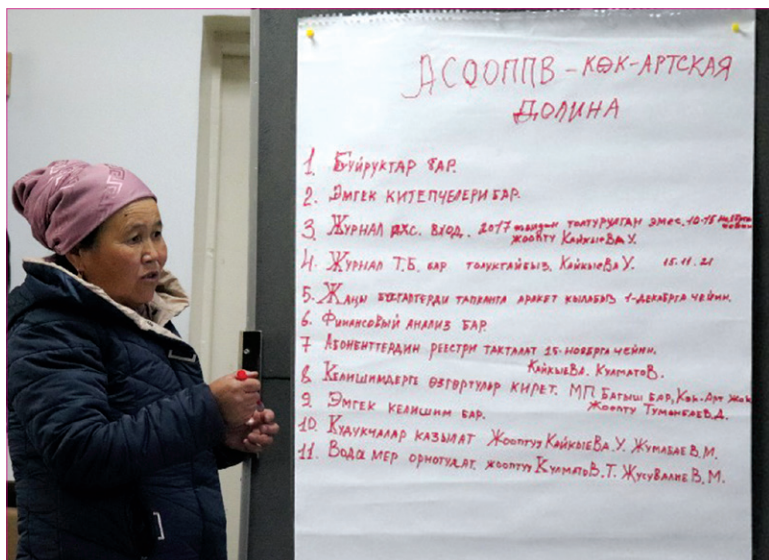 АСООППВ – КӨК-АРТСКАЯ
ДОЛИНА
1. Буйруктар бар.
2. Эмгек китепчелери бар.
3. Журнал вход. 2017 толтурулган эмес. 10-15 ноябрга чейин
жоопту Кайкыева У.
4. Журнал Т.Б. бар толуктайбыз. Кайкыева У. 15.11.21
5. Жаңы бухгалтерди тапканга аракет кылабыз 1-декабрга чейин.
6. Финансовый анализ бар.
7 Абоненттердин реестри такталат 15-ноябрга чейин.
Кайкыева. Кулматов.
8 Келишимдерге өзгөртүүлөр кирет. МП Багыш бар, Көк-Арт жок
Жооптуу Туманбаев Д.
9. Эмгек келишим бар.
10. Кудукчалар казылат Жооптуу Кайкыева. У. Жумабаев. М.
11. Вода мер орнотулат. жооптуу Кулматов. Т. Жусувалиев. М.